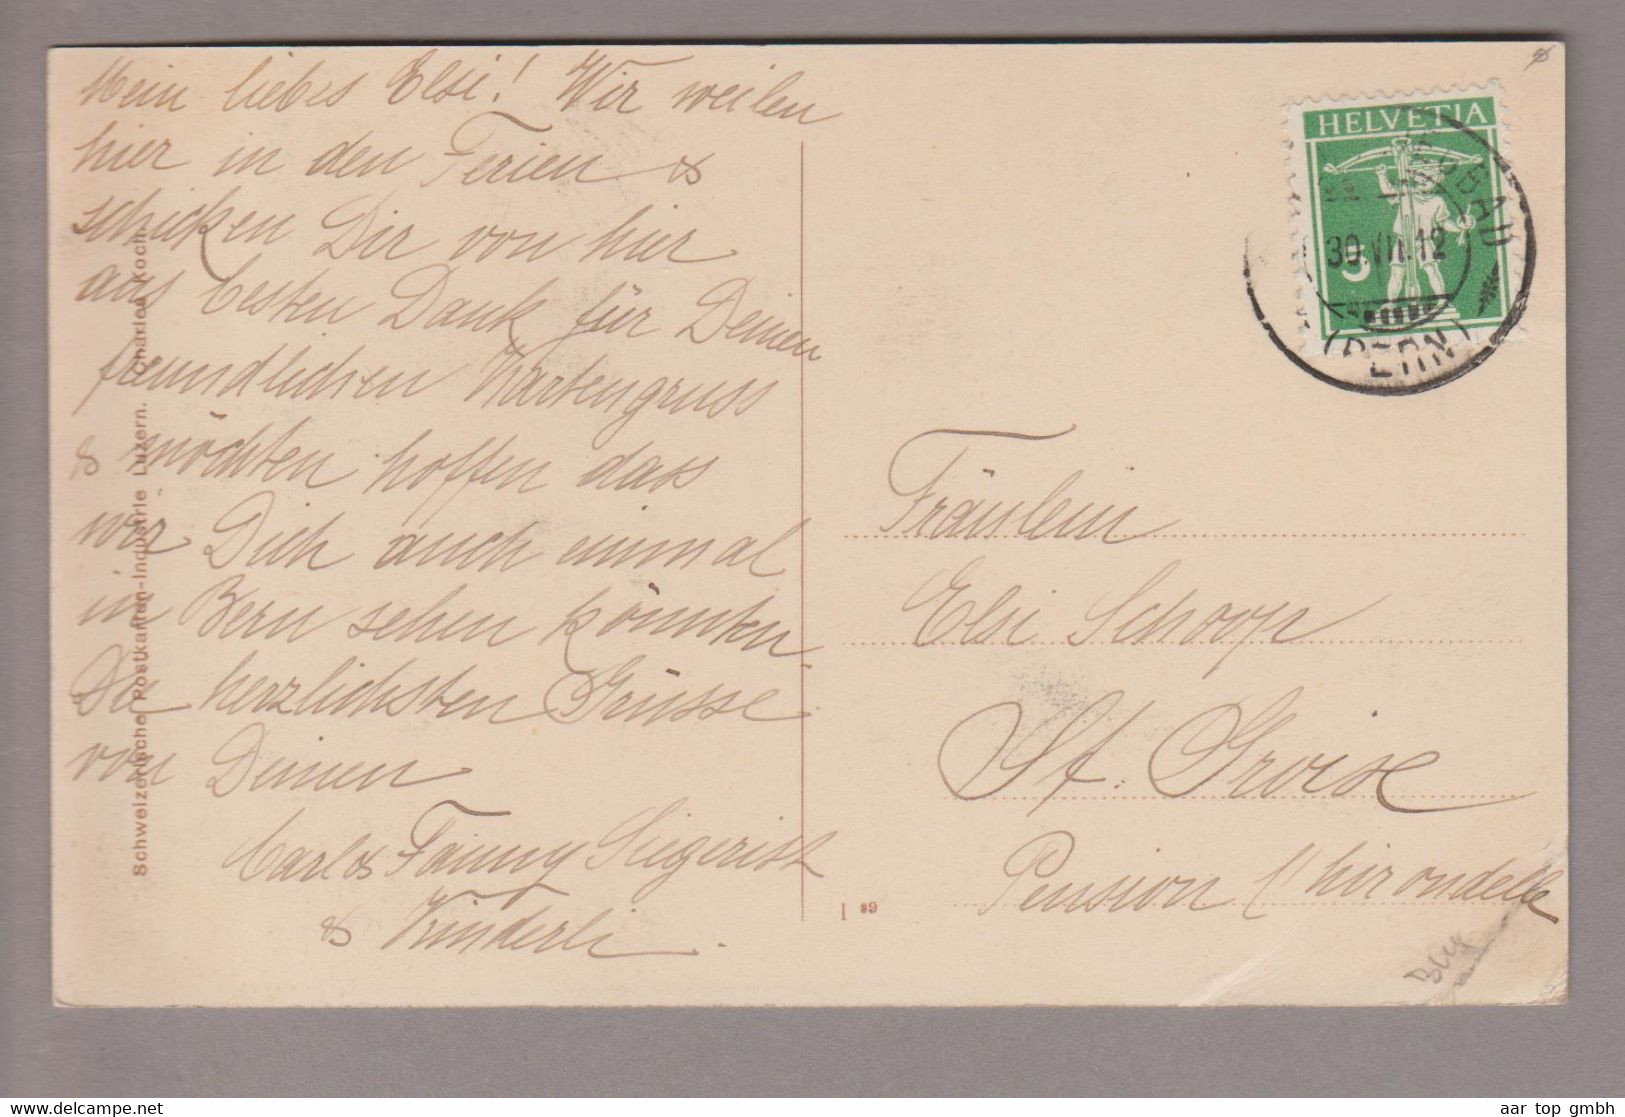 Mein liebes Elsi! Wir weilen
hier in den Ferien &
schicken Dir von hier
aus besten Dank für Deinen
freundlichen Kartengruss
& möchten hoffen dass
wir Dich auch einmal
in Bern sehen könnten.
Die herzlichsten Grüsse
von Deinen
Carl & Fanny Siegerist
& Kinderli.
Schweizerische Postkarten-Industrie Luzern. (Charles Koch)
HELVETIA
5
30.VII.12
(BERN)
Fräulein
Elsi Schoop
St. Croise
Pension l'hirondelle
I 89
Bug
aar top gmbh